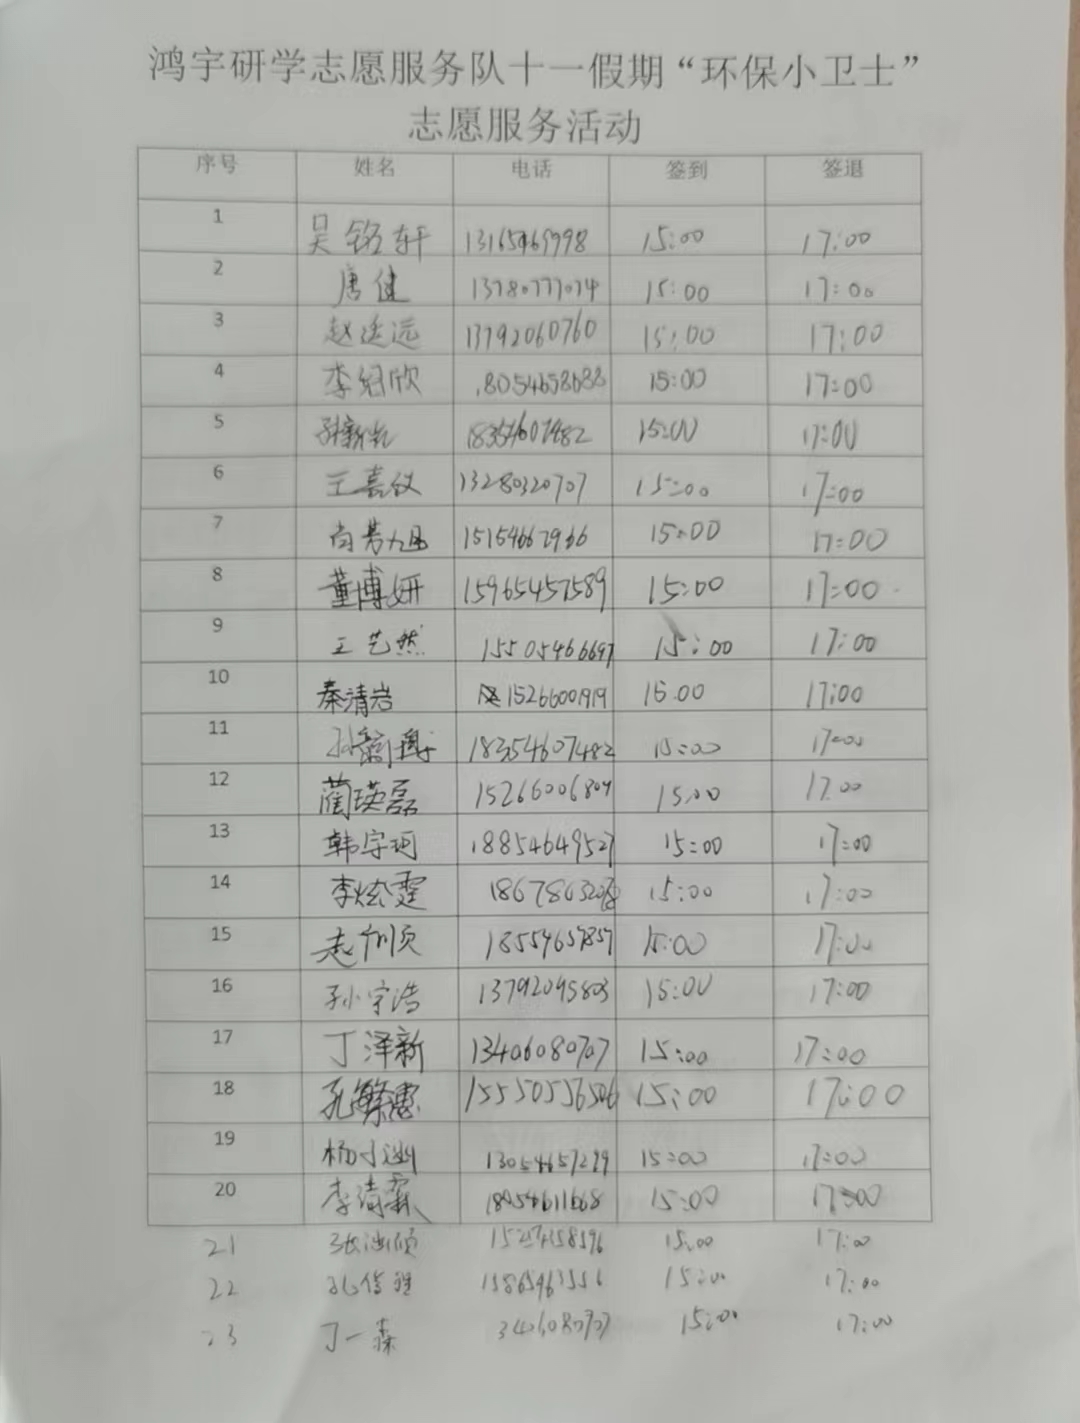 鸿宇研学志愿服务队十一假期“环保小卫士”
志愿服务活动
序号 姓名 电话 签到 签退
1 吴铭轩 13165469998 15:00 17:00
2 唐健 13780777074 15:00 17:00
3 赵 远 13792060760 15:00 17:00
4 李冠欣 18054658688 15:00 17:00
5 孙新 18354607482 15:00 17:00
6 王嘉仪 13280320707 15:00 17:00
7 尚 15154662966 15:00 17:00
8 董博妍 15965457589 15:00 17:00
9 王艺然 15505466697 15:00 17:00
10 秦清岩 15266001919 15:00 17:00
11 孙 18354607482 15:00 17:00
12 蔺瑛磊 15266006804 15:00 17:00
13 韩宇珂 18854649527 15:00 17:00
14 李炫霆 15:00 17:00
15 15:00 17:00
16 孙宇浩 13792095803 15:00 17:00
17 丁泽新 13406080707 15:00 17:00
18 孔繁惠 15550536506 15:00 17:00
19 杨 13054657279 15:00 17:00
20 李清霖 18954611668 15:00 17:00
21 张 15:00 17:00
22 15:00 17:00
23 丁一森 15:00 17:00